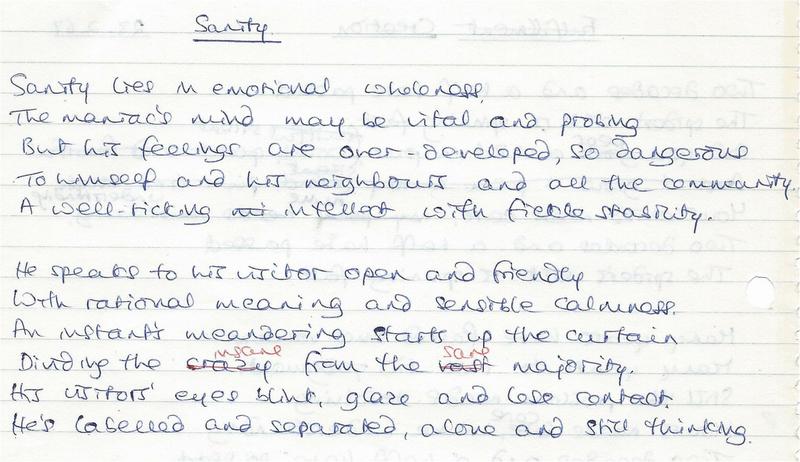 Sanity.
Sanity lies in emotional wholeness.
The maniac's mind may be vital and probing
But his feelings are over-developed, so dangerous
To himself and his neighbours and all the community.
A well-ticking intellect with fickle stability.
He speaks to his visitor open and friendly
With rational meaning and sensible calmness.
An instant's meandering starts up the curtain
insane sane
Dividing the crazy from the vast majority.
His visitors' eyes blink, glaze and lose contact.
He's labelled and separated, alone and still thinking.